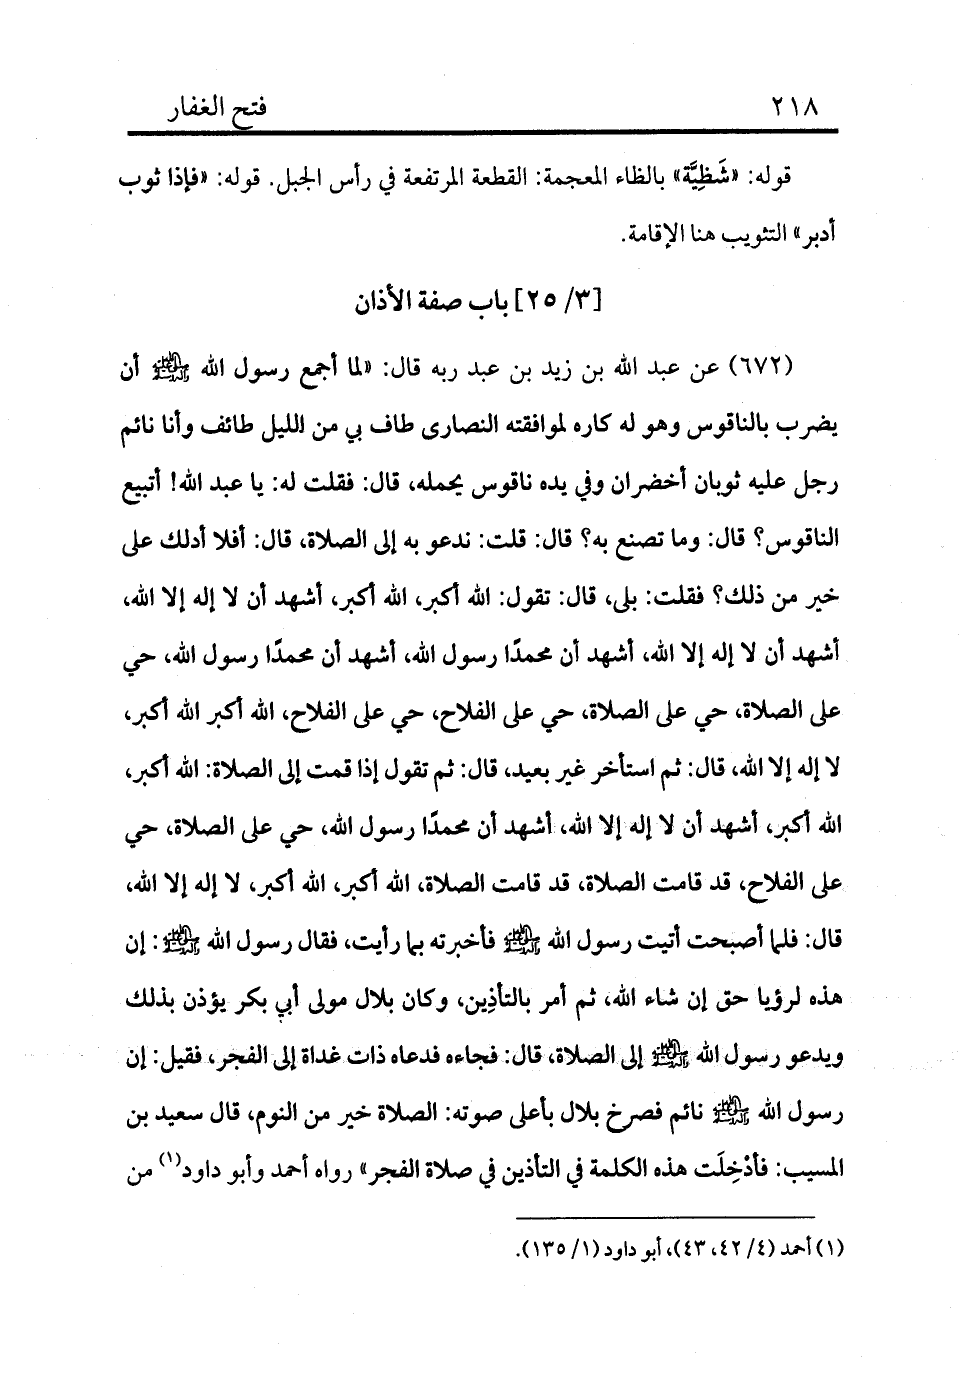 ٢١٨ فتح الغفار
قوله: «شَظِيَّة» بالظاء المعجمة: القطعة المرتفعة في رأس الجبل. قوله: «فإذا ثوب
أدبر» التثويب هنا الإقامة.
[٣/ ٢٥] باب صفة الأذان
(٦٧٢) عن عبد الله بن زيد بن عبد ربه قال: «لما أجمع رسول الله ﷺ أن
يضرب بالناقوس وهو له كاره لموافقته النصارى طاف بي من الليل طائف وأنا نائم
رجل عليه ثوبان أخضران وفي يده ناقوس يحمله، قال: فقلت له: يا عبد الله! أتبيع
الناقوس؟ قال: وما تصنع به؟ قال: قلت: ندعو به إلى الصلاة، قال: أفلا أدلك على
خير من ذلك؟ فقلت: بلى، قال: تقول: الله أكبر، الله أكبر، أشهد أن لا إله إلا الله،
أشهد أن لا إله إلا الله، أشهد أن محمدًا رسول الله، أشهد أن محمدًا رسول الله، حي
على الصلاة، حي على الصلاة، حي على الفلاح، حي على الفلاح، الله أكبر الله أكبر،
لا إله إلا الله، قال: ثم استأخر غير بعيد، قال: ثم تقول إذا قمت إلى الصلاة: الله أكبر،
الله أكبر، أشهد أن لا إله إلا الله، أشهد أن محمدًا رسول الله، حي على الصلاة، حي
على الفلاح، قد قامت الصلاة، قد قامت الصلاة، الله أكبر، الله أكبر، لا إله إلا الله،
قال: فلما أصبحت أتيت رسول الله ﷺ فأخبرته بما رأيت، فقال رسول الله ﷺ: إن
هذه لرؤيا حق إن شاء الله، ثم أمر بالتأذِين، وكان بلال مولى أبي بكر يؤذن بذلك
ويدعو رسول الله ﷺ إلى الصلاة، قال: فجاءه فدعاه ذات غداة إلى الفجر، فقيل: إن
رسول الله ﷺ نائم فصرخ بلال بأعلى صوته: الصلاة خير من النوم، قال سعيد بن
المسيب: فأدْخِلَت هذه الكلمة في التأذين في صلاة الفجر» رواه أحمد وأبو داود(١) من
(١) أحمد (٤/ ٤٢، ٤٣)، أبو داود (١/ ١٣٥).